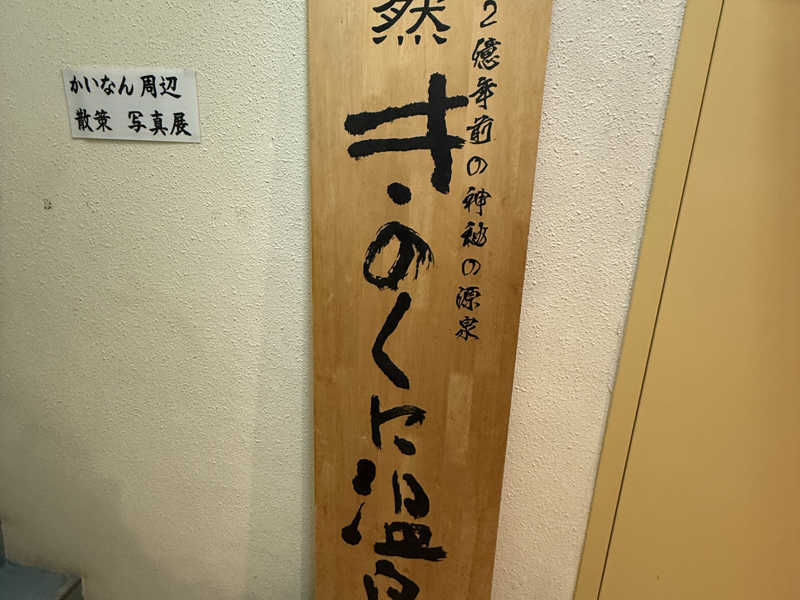 かいなん周辺
散策 写真展
2億年前の神秘の源泉
然 きのくに温